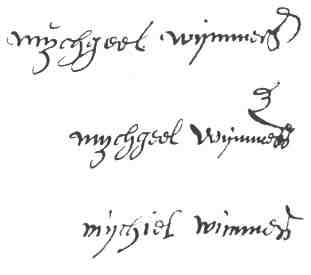 mÿchgeel wijmmers
mychgeel wijmmers
mÿchiel wimmers